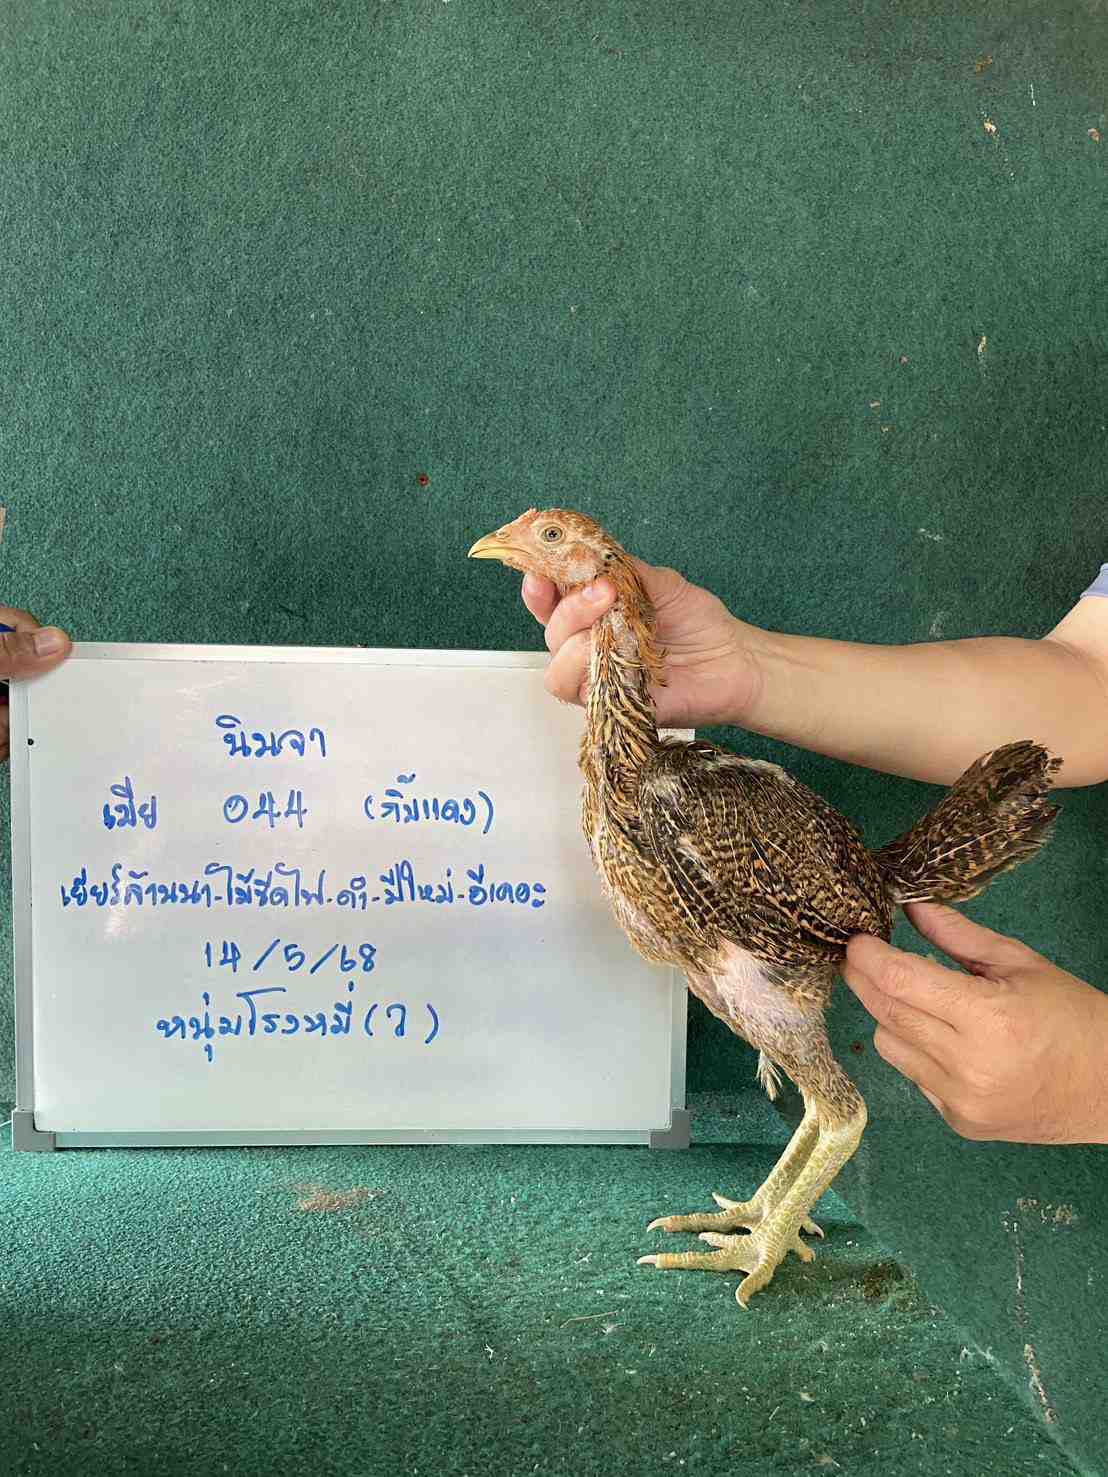 นินจา
เมีย ๐44 (กิ๊มแดง)
เยียร์ล้านนา-ไม้ขีดไฟ-ดำ-มีใหม่-อีเดอะ
14/5/68
หนุ่มโรงหมี่(ว)